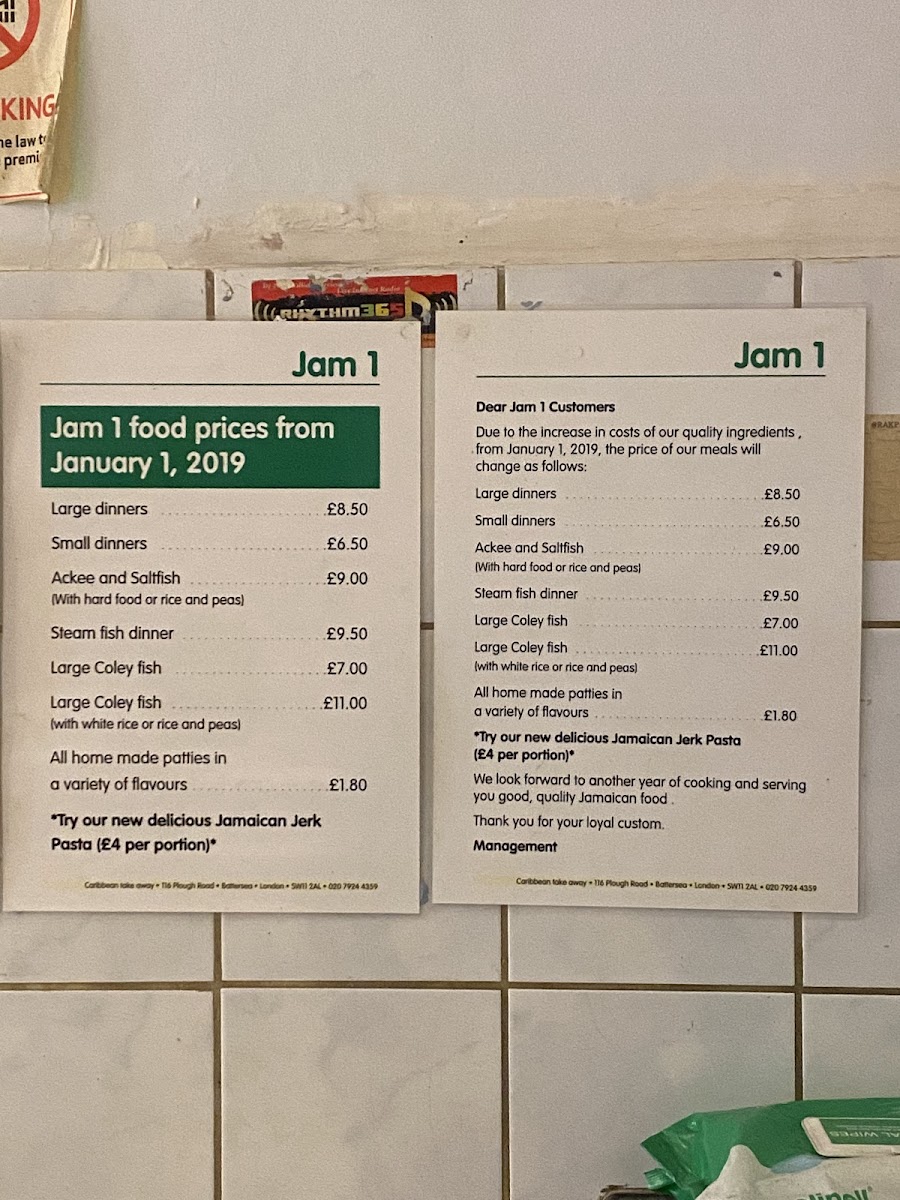 KING
law
Rhythm365
Jam 1
Jam 1 food prices from
January 1, 2019
Large dinners £8.50
Small dinners £6.50
Ackee and Saltfish £9.00
(With hard food or rice and peas)
Steam fish dinner £9.50
Large Coley fish £7.00
Large Coley fish £11.00
(with white rice or rice and peas)
All home made patties in
a variety of flavours £1.80
*Try our new delicious Jamaican Jerk
Pasta (£4 per portion)*
Caribbean take away • 116 Plough Road • Battersea • London • SW11 2AL • 020 7924 4359
Jam 1
Dear Jam 1 Customers
Due to the increase in costs of our quality ingredients ,
from January 1, 2019, the price of our meals will
change as follows:
Large dinners £8.50
Small dinners £6.50
Ackee and Saltfish £9.00
(With hard food or rice and peas)
Steam fish dinner £9.50
Large Coley fish £7.00
Large Coley fish £11.00
(with white rice or rice and peas)
All home made patties in
a variety of flavours £1.80
*Try our new delicious Jamaican Jerk Pasta
(£4 per portion)*
We look forward to another year of cooking and serving
you good, quality Jamaican food .
Thank you for your loyal custom.
Management
Caribbean take away • 116 Plough Road • Battersea • London • SW11 2AL • 020 7924 4359
WIPES